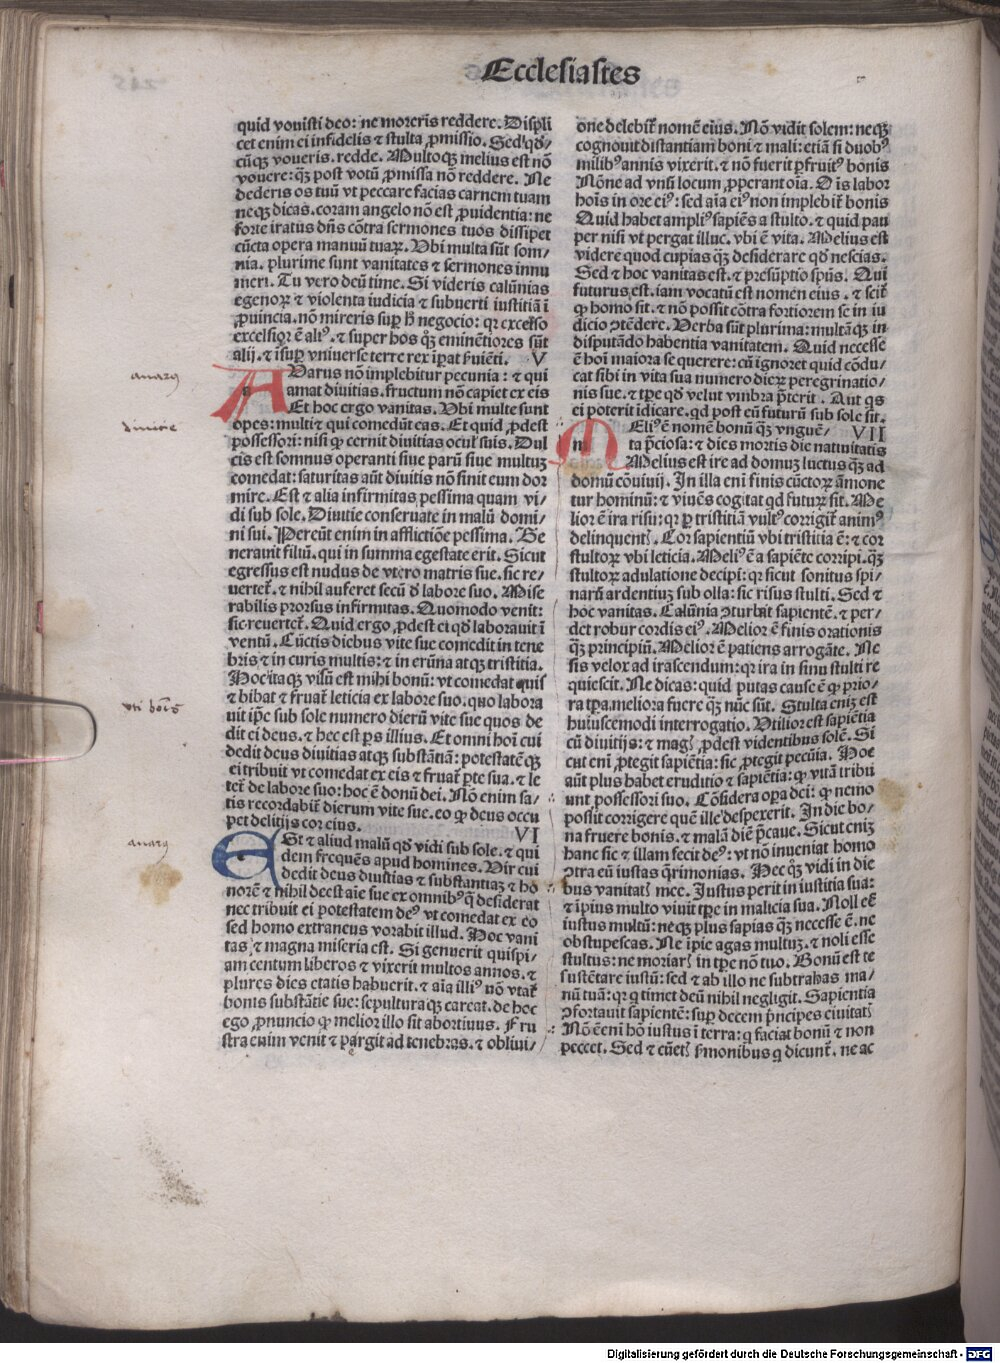 Ecclesiastes
quid vouisti deo: ne moreris reddere. Displi
cet enim ei infidelis ⁊ stulta ꝓmissio. Sed qd̕
cūqꝫ voueris. redde. Multoqꝫ melius est nō
vouere: qꝫ post votū ꝓmissa nō reddere. Ne
dederis os tuū vt peccare facias carnem tuam
neqꝫ dicas. coram angelo nō est ꝓuidentia: ne
forte iratus dn̄s cōtra sermones tuos dissipet
cūcta opera manuū tuaꝝ. Vbi multa sūt som/
nia. plurime sunt vanitates ⁊ sermones innu
meri. Tu vero deū time. Si videris calūnias
egenoꝝ ⁊ violenta iudicia ⁊ subuerti iustitiā ī
ꝓuincia. nō mireris suꝑ h̄ negocio: qꝛ excelso
excelsior ē aliꝰ. ⁊ super hos qꝫ eminētiores sūt
alij. ⁊ īsuꝑ vniuerse terre rex īꝑat ẜuiēti. V
AVarus nō implebitur pecunia: ⁊ qui
amat diuitias. fructum nō capiet ex eis
Et hoc ergo vanitas. Vbi multe sunt
opes: multi ⁊ qui comedūt eas. Et quid ꝓdest
possessori: nisi ꝙ cernit diuitias ocul̕ suis. Dul
cis est somnus operanti siue parū siue multuꝫ
comedat: saturitas aūt diuitis nō sinit eum dor
mire. Est ⁊ alia infirmitas pessima quam vi/
di sub sole. Diuitie conseruate in malū domi/
ni sui. Pereūt enim in afflictiōe pessima. Ge
nerauit filiū. qui in summa egestate erit. Sicut
egressus est nudus de vtero matris sue. sic re/
uertet̄. ⁊ nihil auferet secū d̕ labore suo. Mise
rabilis prorsus infirmitas. Quomodo venit:
sic reuertet̄. Quid ergo ꝓdest ei qd̕ laborauit ī
ventū. Cūctis diebus vite sue comedit in tene
bris ⁊ in curis multis: ⁊ in erūna atqꝫ tristitia.
Hoc itaqꝫ visū est mihi bonū: vt comedat quis
⁊ bibat ⁊ fruat̄ leticia ex labore suo. quo labora
uit ip̄e sub sole numero dierū vite sue quos de
dit ei deus. ⁊ hec est ꝑs illius. Et omni hoī cui
dedit deus diuitias atqꝫ substātiā: potestatēqꝫ
ei tribuit vt comedat ex eis ⁊ fruat̄ ꝑte sua. ⁊ le
tet̄ de labore suo: hoc ē donū dei. Nō enim sa/
tis recordabit̄ dierum vite sue. eo ꝙ deus occu
pet delitijs cor eius. VI
ESt ⁊ aliud malū qd̕ vidi sub sole. ⁊ qui
dem frequēs apud homines. Vir cui
dedit deus diuitias ⁊ substantiaꝫ ⁊ ho
norē ⁊ nihil deest aīe sue ex omnibꝰ q̄ desiderat
nec tribuit ei potestatem deꝰ vt comedat ex eo
sed homo extraneus vorabit illud. Hoc vani
tas ⁊ magna miseria est. Si genuerit quispi/
am centum liberos ⁊ vixerit multos annos. ⁊
plures dies etatis habuerit. ⁊ aīa illiꝰ nō vtat̄
bonis substātie sue: sepulturaqꝫ careat. de hoc
ego ꝓnuncio ꝙ melior illo sit abortiuus. Fru
stra enim venit ⁊ pergit ad tenebras. ⁊ obliui/
one delebit̄ nomē eius. Nō vidit solem: neqꝫ
cognouit distantiam boni ⁊ mali: etiā si duobꝰ
milibꝰ annis vixerit. ⁊ nō fuerit ꝑfruitꝰ bonis
Nōne ad vnū locum ꝓperant oīa. Oīs labor
hoīs in ore eiꝰ: sed aīa eiꝰ non implebit̄ bonis
Quid habet ampliꝰ sapiēs a stulto. ⁊ quid pau
per nisi vt pergat illuc. vbi ē vita. Melius est
videre quod cupias qꝫ desiderare qd̕ nescias.
Sed ⁊ hoc vanitas est. ⁊ presūptio spūs. Qui
futurus est. iam vocatū est nomen eius. ⁊ scit̄
ꝙ homo sit. ⁊ nō possit cōtra fortiorem se in iu
dicio ꝯtēdere. Verba sūt plurima: multāqꝫ in
disputādo habentia vanitatem. Quid necesse
ē hoī maiora se querere: cū ignoret quid cōdu/
cat sibi in vita sua numero dieꝝ peregrinatio/
nis sue. ⁊ tꝑe qd̕ velut vmbra p̄terit. Aut qs
ei poterit īdicare. qd post eū futurū sub sole sit.
MEliꝰ ē nomē bonū qꝫ vnguē/ VII
ta p̄ciosa: ⁊ dies mortis die natiuitatis
Melius est ire ad domuꝫ luctus qꝫ ad
domū cōuiuij. In illa enī finis cūctoꝝ āmone
tur hominū: ⁊ viuēs cogitat qd futuꝝ sit. Me
lior ē ira risu: qꝛ ꝑ tristitiā vultꝰ corrigit̄ animꝰ
delinquentꝭ. Cor sapientiū vbi tristitia ē: ⁊ cor
stultoꝝ vbi leticia. Meliꝰ ē a sapiēte corripi. qꝫ
stultoꝝ adulatione decipi: qꝛ sicut sonitus spi/
narū ardentiuꝫ sub olla: sic risus stulti. Sed ⁊
hoc vanitas. Calūnia ꝯturbat sapientē. ⁊ per/
det robur cordis eiꝰ. Melior ē finis orationis
qꝫ principiū. Melior ē patiens arrogāte. Ne
sis velox ad irascendum: qꝛ ira in sinu stulti re
quiescit. Ne dicas: quid putas cause ē ꝙ prio/
ra tꝑa meliora fuere qꝫ nūc sūt. Stulta eniꝫ est
huiuscemodi interrogatio. Vtilior est sapiētia
cū diuitijs: ⁊ magꝭ ꝓdest videntibus solē. Si
cut enī ꝓtegit sapiētia: sic ꝓtegit pecūia. Hoc
aūt plus habet eruditio ⁊ sapiētia: ꝙ vitā tribu
unt possessori suo. Cōsidera oꝑa dei: ꝙ nemo
possit corrigere quē ille despexerit. In die bo/
na fruere bonis. ⁊ malā diē p̄caue. Sicut eniꝫ
hanc sic ⁊ illam fecit deꝰ: vt nō inueniat homo
ꝯtra eū iustas q̄rimonias. Hec qꝫ vidi in die
bus vanitatꝭ mee. Iustus perit in iustitia sua:
⁊ īpius multo viuit tꝑe in malicia sua. Noli eē
iustus multū: neqꝫ plus sapias qꝫ necesse ē. ne
obstupescas. Ne īpie agas multuꝫ. ⁊ noli esse
stultus: ne moriarꝭ in tꝑe nō tuo. Bonū est te
sustētare iustū: sed ⁊ ab illo ne subtrahas ma/
nū tuā: qꝛ q timet deū nihil negligit. Sapientia
ꝯfortauit sapientē: suꝑ decem p̄ncipes ciuitatꝭ
Nō ē enī hō iustus ī terra: q faciat bonū ⁊ non
peccet. Sed ⁊ cūctꝭ ẜmonibus q dicunt̄. ne ac
Digitalisierung gefördert durch die Deutsche Forschungsgemeinschaft - DFG